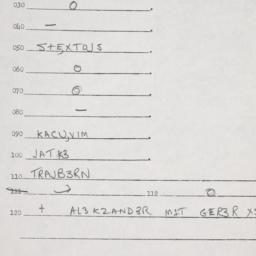 030 O
040 —
050 STEXTOJS
060 O
070 O
080 —
090 KACUVIM
100 JATK3
110 TRAJB3RN
110 O
120 + AL3KZAND3R MIT GER3R